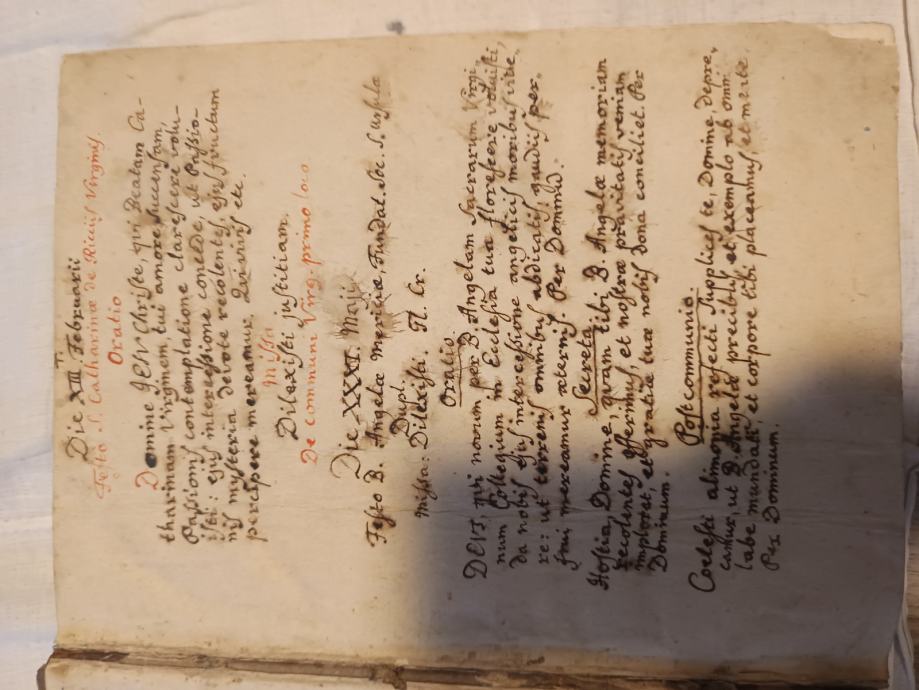 Die XIII Februarii
Festo S. Catharinæ de Ricciis Virginis.
Oratio
Domine JESU Christe, qui Beatam Ca-
tharinam Virginem, tui amore succensam,
Passionis contemplatione clarescere volu-
isti: ejus intercessione concede, ut Passio-
nis mysteria devote recolentes, ejus fructum
percipere mereamur. Qui vivis etc.
Missa
Dilexisti justitiam.
De communi Virg. primo loco
Die XXXI. Maji
Festo B. Angelæ Mericiæ, Fundat. Soc. S. Ursulæ
Dupl.
Missa: Dilexisti. Gl. Cr.
Oratio.
DEUS, qui novum per B. Angelam Sacrarum Virgi-
num Collegium in Ecclesia tua florescere voluisti,
da nobis ejus intercessione angelicis moribus vive-
re: ut terrenis omnibus abdicatis gaudiis per-
frui mereamur æternis. Per Dominū.
Secreta
Hostia Domine, quam tibi B. Angelæ memoriam
recolentes offerimus, et nostræ pravitatis veniam
imploret, et gratiæ tuæ nobis dona conciliet. Per
Dominum.
Postcommunio.
Coelesti alimonia refecti supplices te, Domine, depre,
camur, ut B. Angelæ precibus et exemplo ab omni
labe mundati, et corpore tibi placeamus, et mente.
Per Dominum.